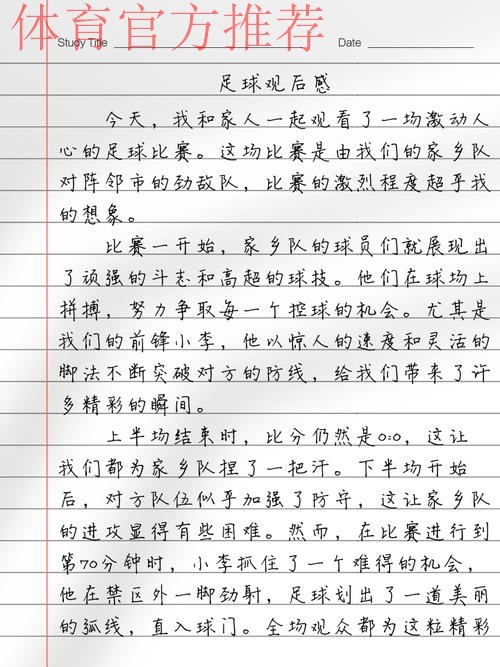 体育官方推荐
Study Title Date
足球观后感
今天，我和家人一起观看了一场激动人
心的足球比赛。这场比赛是由我们的家乡队
对阵邻市的劲敌队，比赛的激烈程度超乎我
的想象。
比赛一开始，家乡队的球员们就展现出
了顽强的斗志和高超的球技。他们在球场上
拼搏，努力争取每一个控球的机会。尤其是
我们的前锋小李，他以惊人的速度和灵活的
脚法不断突破对方的防线，给我们带来了许
多精彩的瞬间。
上半场结束时，比分仍然是0:0，这让
我们都为家乡队捏了一把汗。下半场开始
后，对方队伍似乎加强了防守，这让家乡队
的进攻显得有些困难。然而，在比赛进行到
第70分钟时，小李抓住了一个难得的机会，
他在禁区外一脚劲射，足球划出了一道美丽
的弧线，直入球门。全场观众都为这粒精彩